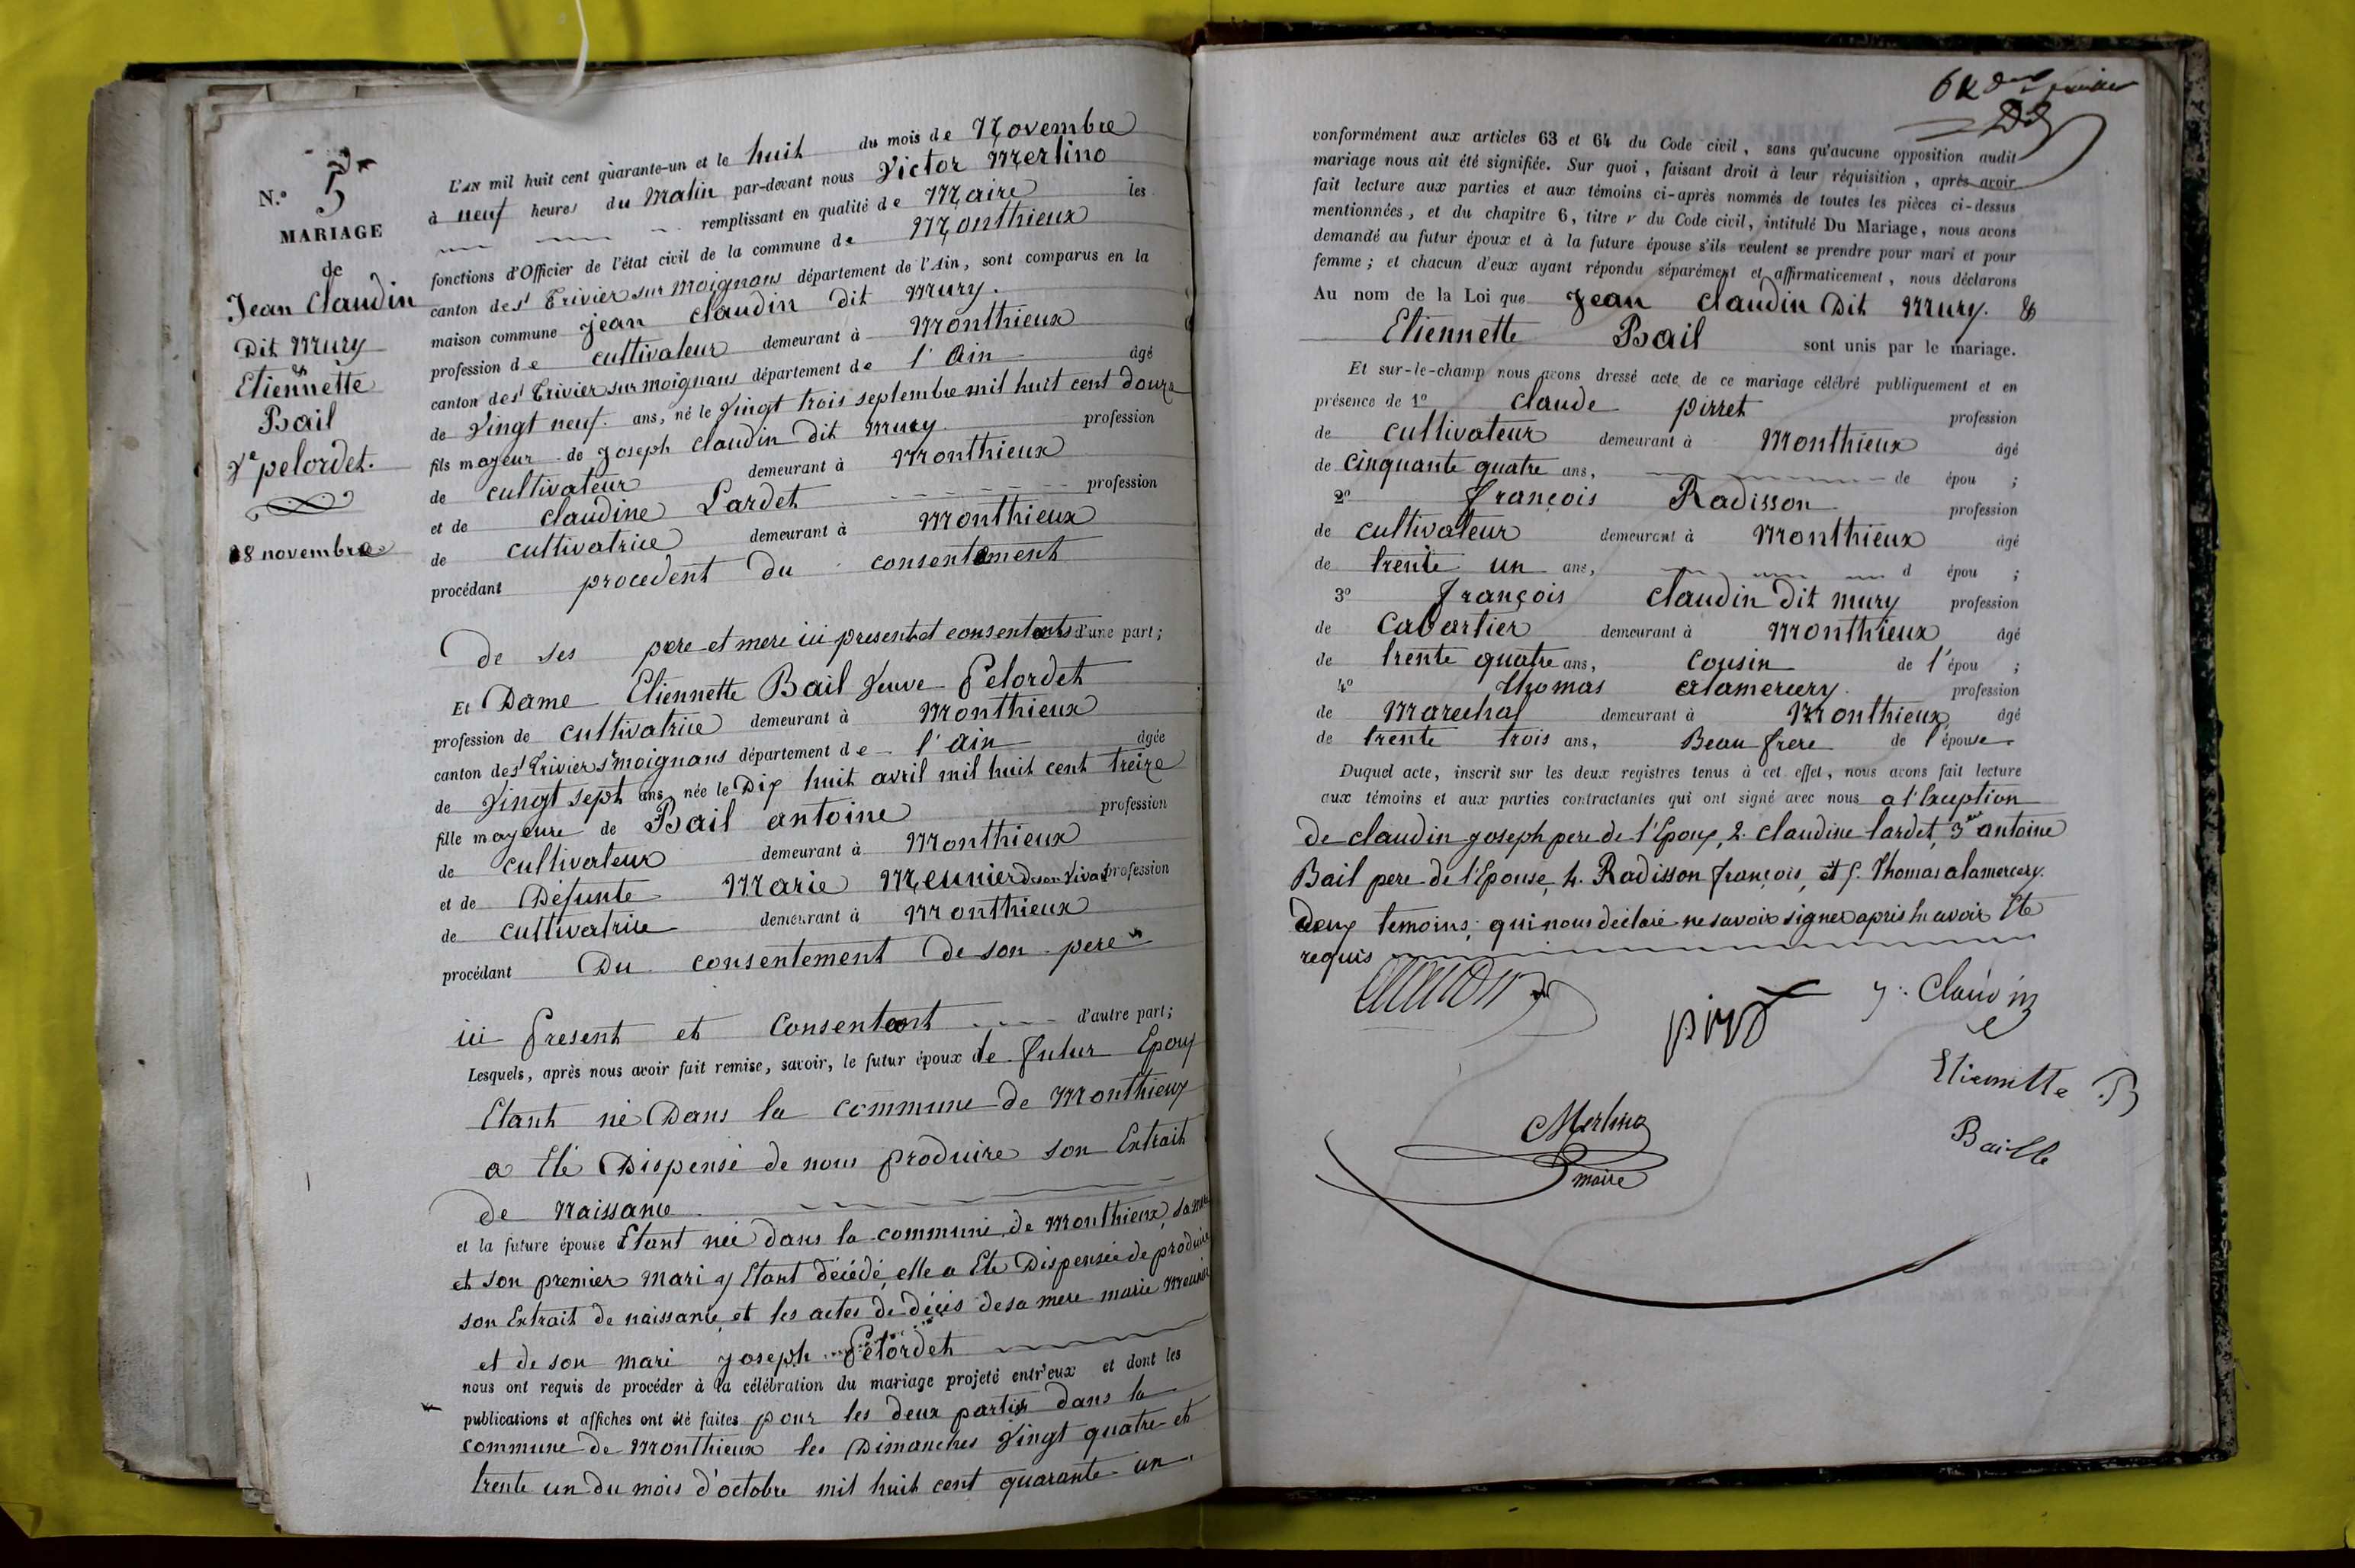 N.° 5
MARIAGE
de
Jean Claudin
Dit Mury
&
Etiennette
Bail
Ve pelordet.
8 novembre
L'AN mil huit cent quarante-un et le huit du mois de Novembre
à neuf heures du Matin par-devant nous Victor Merlino
remplissant en qualité de Maire les
fonctions d'Officier de l'état civil de la commune de Monthieux
canton de St Trivier sur moignans département de l'Ain, sont comparus en la
maison commune jean claudin dit Mury.
profession de cultivateur demeurant à Monthieux
canton de St Trivier sur moignans département de l'Ain âgé
de Vingt neuf ans, né le Vingt trois septembre mil huit cent douze
fils majeur de joseph claudin dit Mury profession
de cultivateur demeurant à Monthieux
et de claudine Lardet profession
de cultivatrice demeurant à Monthieux
procédant procedent du consentement
de ses pere et mere ici present et consentents d'une part;
Et Dame Etiennette Bail Veuve Pelordet
profession de cultivatrice demeurant à Monthieux
canton de St Trivier sr moignans département de l'Ain âgée
de Vingt sept ans, née le Dix huit avril mil huit cent treize
fille majeure de Bail antoine profession
de cultivateur demeurant à Monthieux
et de Défunte Marie Meunier de son Vivant profession
de cultivatrice demeurant à Monthieux
procédant Du consentement de son pere
ici Present et Consentent d'autre part;
Lesquels, après nous avoir fait remise, savoir, le futur époux de futur Epoux
Etant né Dans la commune de Monthieux
a Eté Dispensé de nous produire son Extrait
de Naissance
et la future épouse Etant née dans la commune de Monthieux, sa mere
et son premier mari y Etant décédé, elle a Eté Dispensée de produire
son Extrait de naissance, et les actes de décès de sa mere marie Meunier
et de son mari joseph Pelordet
nous ont requis de procéder à la célébration du mariage projeté entr'eux et dont les
publications et affiches ont été faites pour les deux parties dans la
commune de Monthieux les Dimanches Vingt quatre et
trente un du mois d'octobre mil huit cent quarante un.
conformément aux articles 63 et 64 du Code civil, sans qu'aucune opposition audit
mariage nous ait été signifiée. Sur quoi, faisant droit à leur réquisition, après avoir
fait lecture aux parties et aux témoins ci-après nommés de toutes les pièces ci-dessus
mentionnées, et du chapitre 6, titre v du Code civil, intitulé Du Mariage, nous avons
demandé au futur époux et à la future épouse s'ils veulent se prendre pour mari et pour
femme; et chacun d'eux ayant répondu séparément et affirmativement, nous déclarons
Au nom de la Loi que Jean claudin Dit Mury. &
Etiennette Bail sont unis par le mariage.
Et sur-le-champ nous avons dressé acte de ce mariage célébré publiquement et en
présence de 1° claude pirret profession
de cultivateur demeurant à Monthieux âgé
de cinquante quatre ans, de épou ;
2° françois Radisson profession
de cultivateur demeurant à Monthieux âgé
de trente un ans, d épou ;
3° françois claudin dit mury profession
de Cabartier demeurant à Monthieux âgé
de trente quatre ans, cousin de l'épou ;
4° thomas alamercery profession
de Marechal demeurant à Monthieux âgé
de trente trois ans, Beau frere de l'épouse
Duquel acte, inscrit sur les deux registres tenus à cet effet, nous avons fait lecture
aux témoins et aux parties contractantes qui ont signé avec nous a l'Exception
de claudin joseph pere de l'Epoux, 2. claudine lardet, 3 antoine
Bail pere de l'Epouse, 4. Radisson françois, et 5. Thomas alamercery.
deux temoins; qui nous déclaré ne savoir signer apris lu avoir Eté
requis
Claudin
j. Claudin
Etiennette B
Baille
Merlino
maire